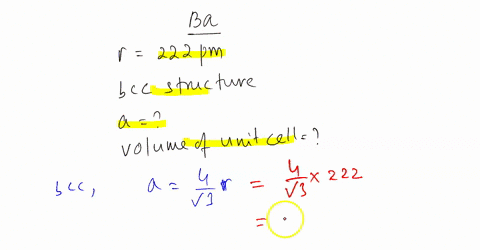 Ba
r = 222 pm
bcc structure
a = ?
volume of unit cell = ?
bcc, a = 4/√3 r = 4/√3 × 222
=